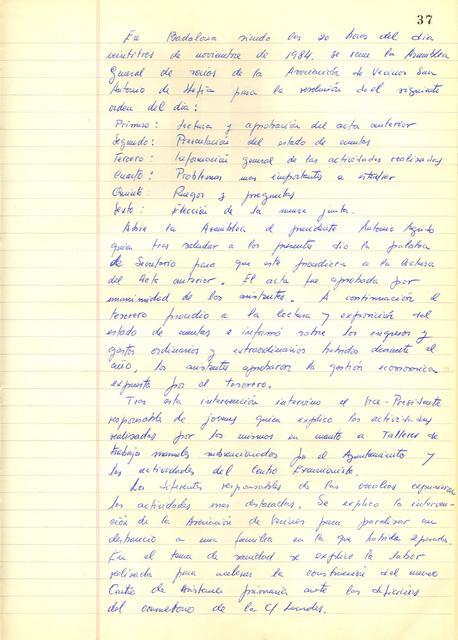 37
En Badalona siendo las 20 horas del día
veintitres de noviembre de 1984. se reune la Asamblea
General de socios de la Asociación de Vecinos San
Antonio de Llefia para la resolución del siguiente
orden del dia:
Primero: Lectura y aprobación del acta anterior
Segundo: Presentación del estado de cuentas
Tercero: Información general de las actividades realizadas
Cuarto: Problemas mas importantes a
Quinto: Ruegos y preguntas
Sexto: Elección de la nueva junta.
Abre la Asamblea el presidente Antonio
quien tras saludar a los presentes dio la palabra
al Secretario para que este procediera a la lectura
del Acta anterior. El acta fue aprobada por
unanimidad de los asistentes. A continuación el
tesorero procedio a la lectura y exposición del
estado de cuentas e informó sobre los ingresos y
gastos ordinarios y extraordinarios habidos durante el
año, los asistentes aprobaron la gestión economica
expuesta por el tesorero.
Tras esta intervención intervino el Vice-Presidente
responsable de jovenes quien explico las actividades
realizadas por los mismos en cuanto a Talleres de
trabajo manuales subvencionados por el Ayuntamiento y
las actividades del Centro Excursionista.
Los diferentes responsables de las vocalias expusieron
las actividades mas destacadas. Se explico la interven-
ción de la Asociación de Vecinos para paralizar un
deshaucio a una familia en la que habida
En el tema de sanidad se explico la labor
realizada para acelerar la construcción del nuevo
Centro de Asistencia primaria ante las deficiencias
del consultorio de la C/ Lourdes.